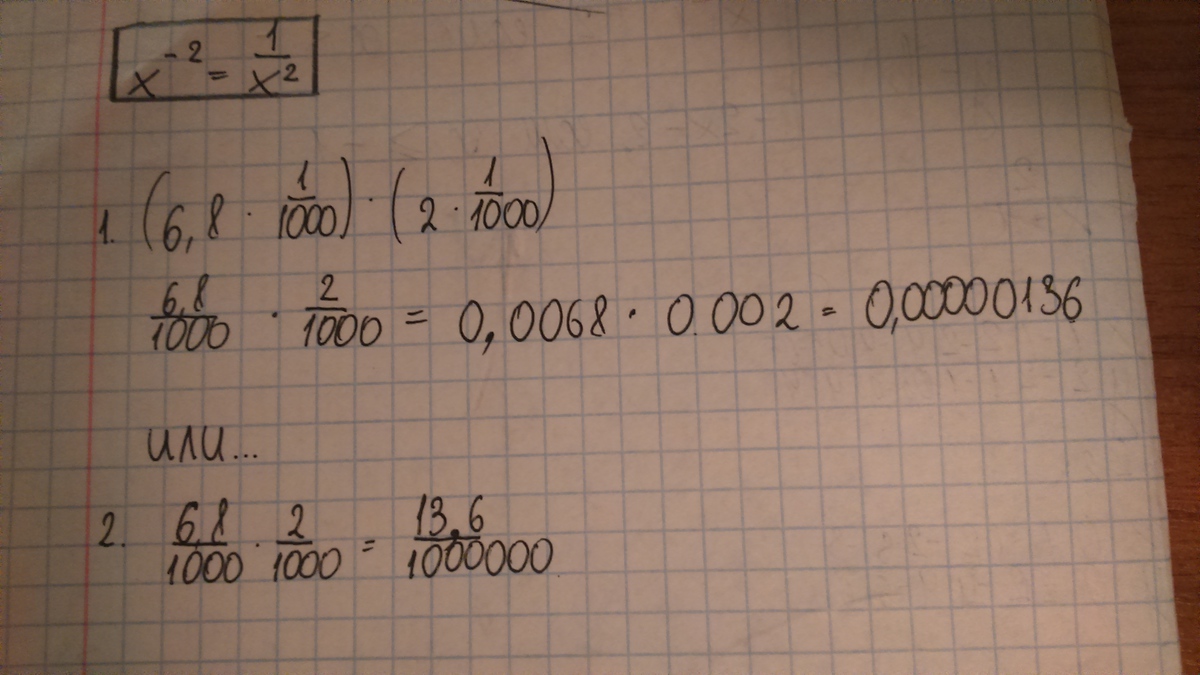 x⁻² = 1/x²
1. (6,8 · 1/1000) · (2 · 1/1000)
6,8/1000 · 2/1000 = 0,0068 · 0.002 = 0,00000136
или...
2. 6,8/1000 · 2/1000 = 13,6/1000000